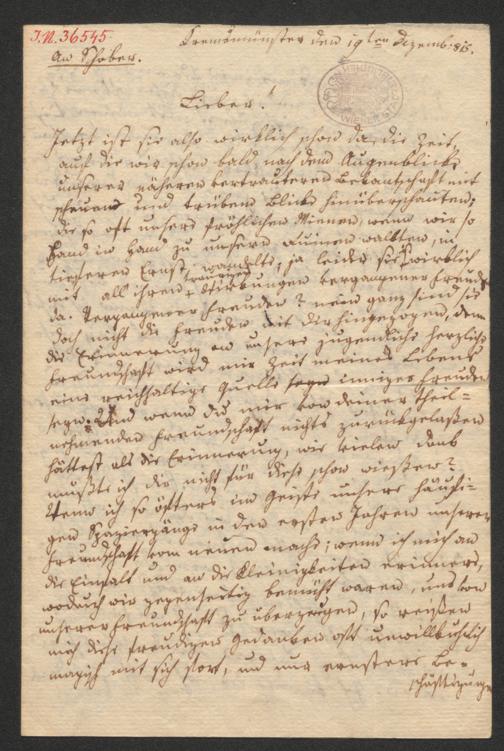 I.N. 36545.
An Schober.
Kremsmünster den 19ten Dezemb. 815.
Lieber!
Jetzt ist sie also wirklich schon da, die Zeit,
auf die wir schon bald nach dem Augenblicke
unserer näheren vertrauteren Bekantschaft mit
scheuen und trüben Blick hinüberschauten;
die so oft unsere fröhlichen Mienen, wenn wir so
Hand in Hand zu unseren Ruinen wallten, in
tieferen Ernst wandelte, ja leider sie ist wirklich
mit all ihren traurigen Wirkungen vergangener Freude
da. Vergangener Freuden? nein ganz sind sie
doch nicht die Freuden mit dir hingezogen, denn
die Erinnerung an unsere jugendliche herzliche
Freundschaft wird mir Zeit meines Lebens
eine reichhaltige Quelle inniger Freuden
seyn. Und wenn du mir von deiner theil-
nehmenden Freundschaft nichts zurückgelassen
hättest als die Erinnerung, wie vielen dank
müßte ich dir nicht für diese schon wissen?
Wenn ich so öfters im Geiste unsere häufi-
gen Spaziergänge in den ersten Jahren unserer
Freundschaft vom neuen mache; wenn ich mich an
die Einfalt und an die Kleinigkeiten erinnere,
wodurch wir gegenseitig bemüht waren, uns von
unserer Freundschaft zu überzeugen, so reißen
mich diese freudigen Gedanken oft unwillkührlich
magisch mit sich fort, und nur ernstere Be-
schäftigungen